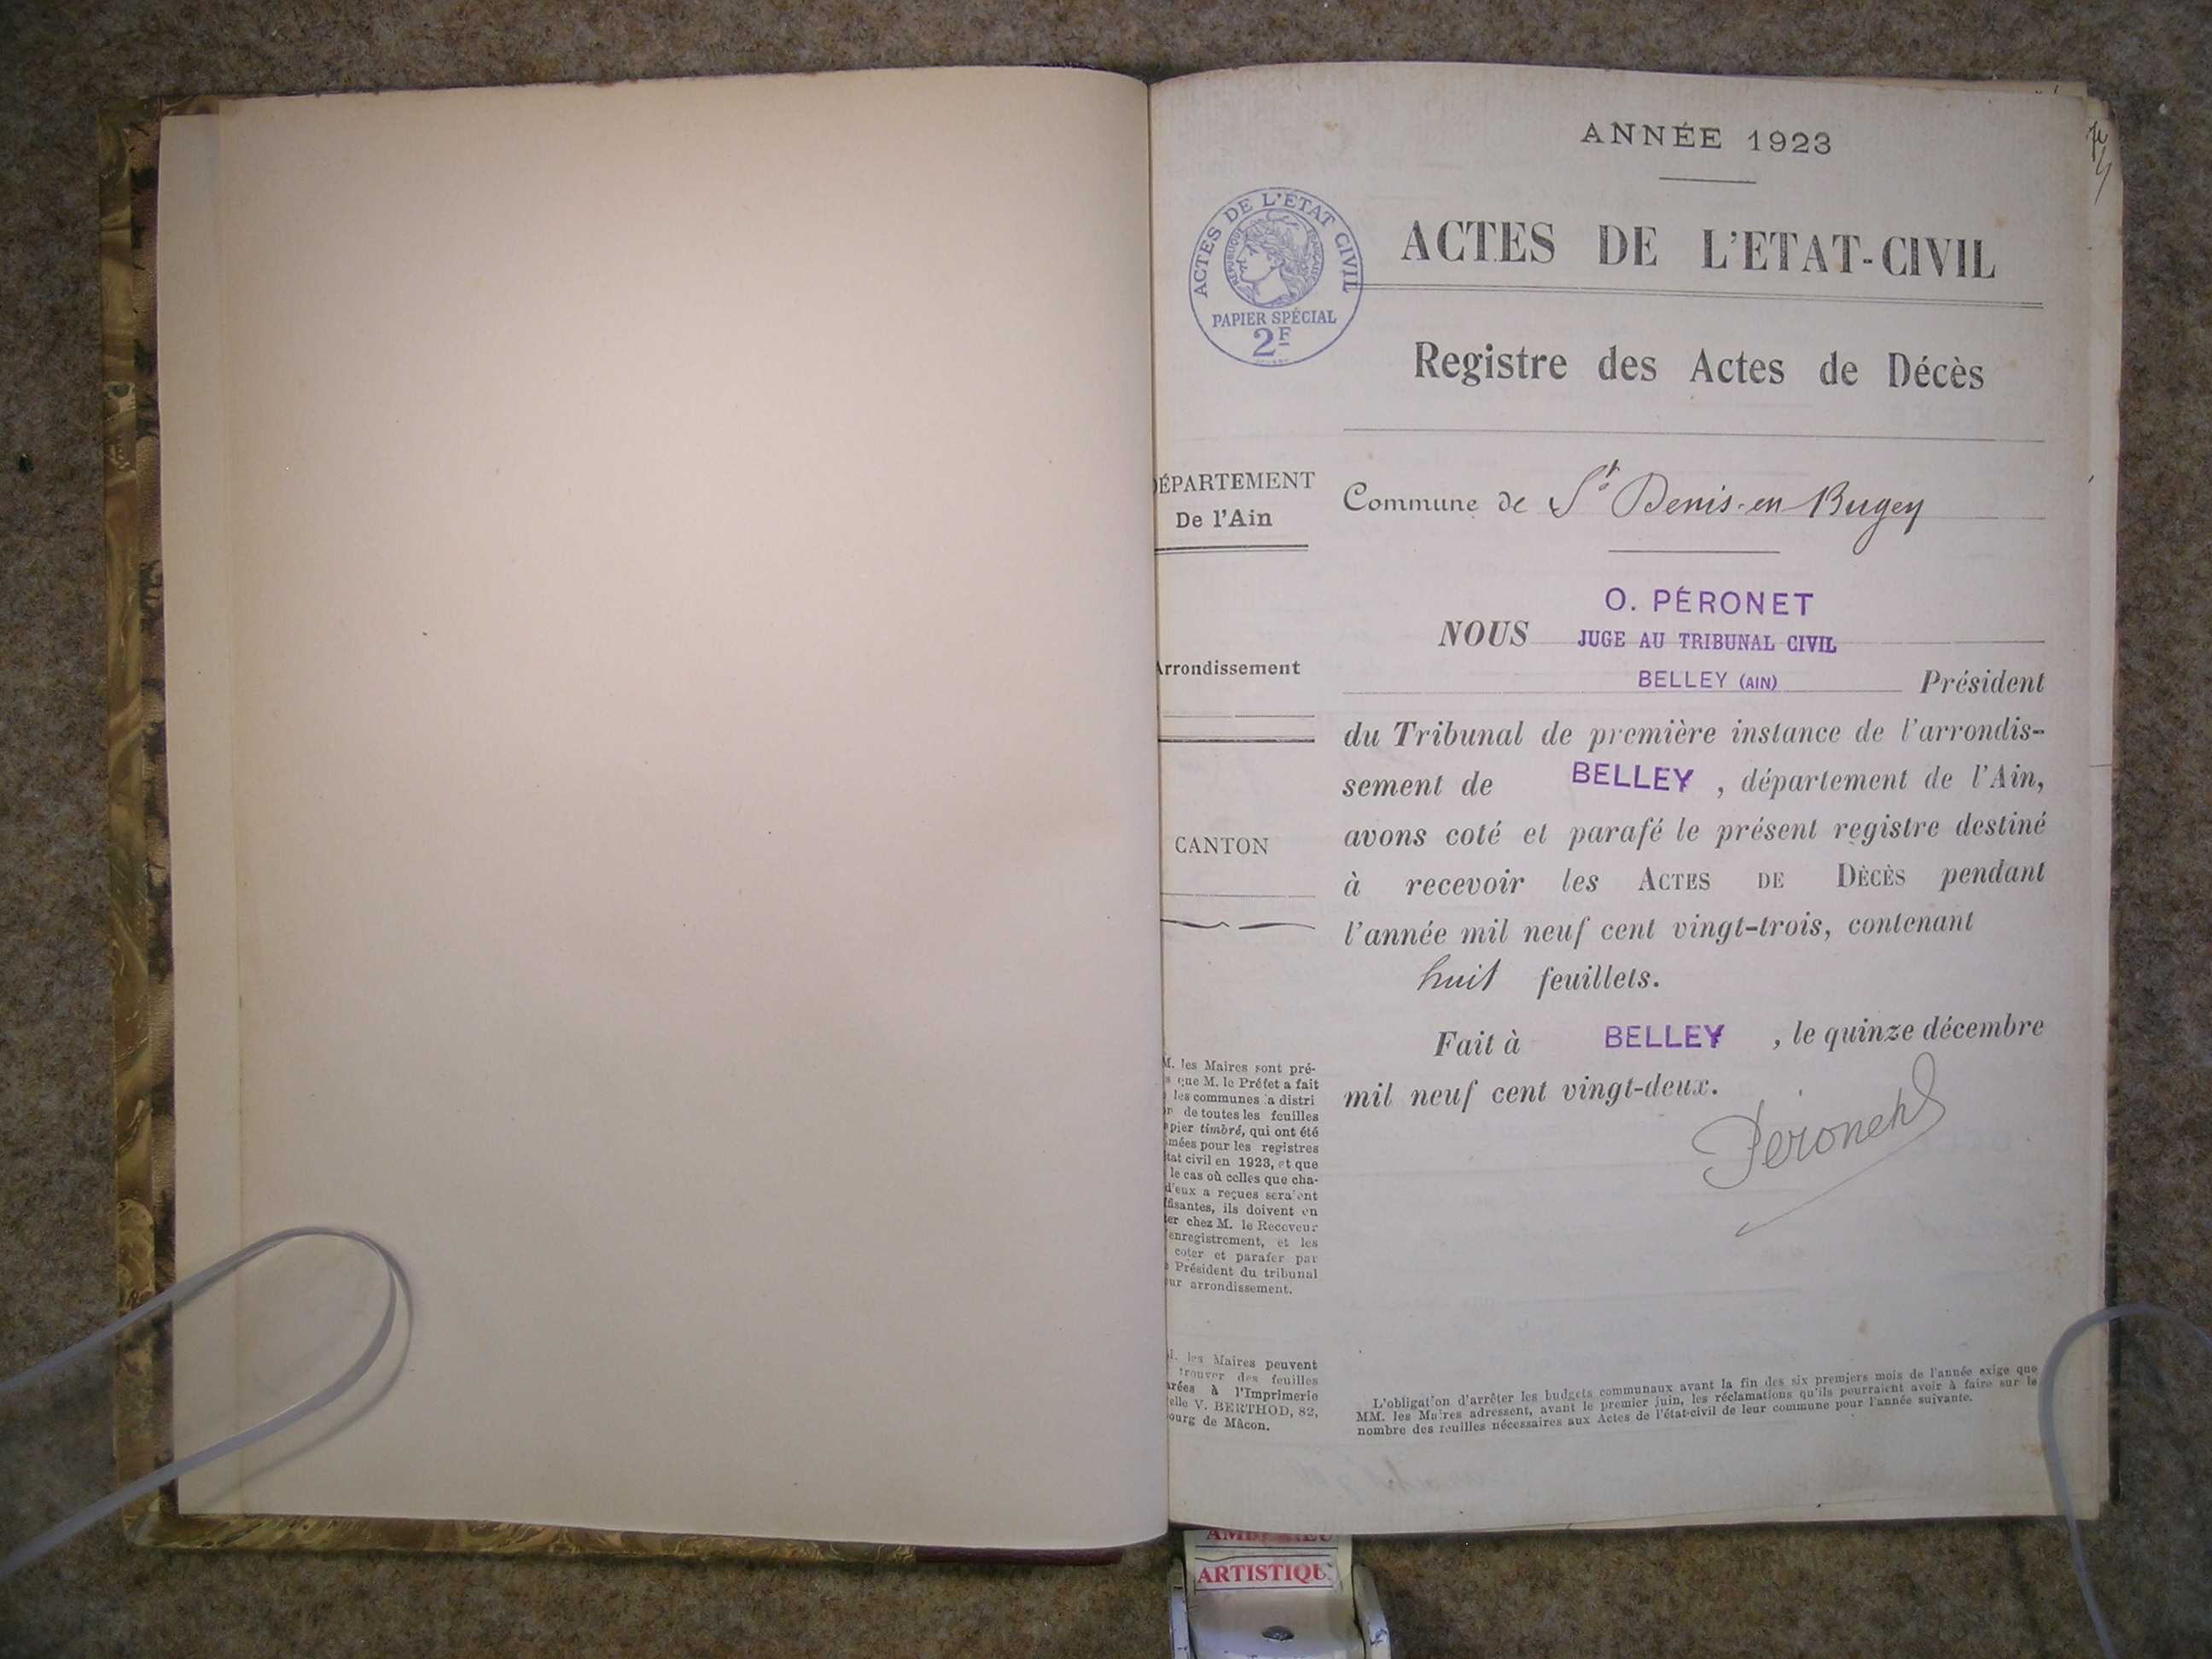 ANNÉE 1923
ACTES DE L'ETAT CIVIL
RÉPUBLIQUE FRANÇAISE
PAPIER SPÉCIAL
2F
ACTES DE L'ETAT-CIVIL
Registre des Actes de Décès
ÉPARTEMENT
De l'Ain
Commune de St Denis-en-Bugey
O. PÉRONET
NOUS JUGE AU TRIBUNAL CIVIL
BELLEY (AIN) Président
Arrondissement
du Tribunal de première instance de l'arrondis-
sement de BELLEY, département de l'Ain,
avons coté et parafé le présent registre destiné
à recevoir les ACTES DE DÉCÈS pendant
l'année mil neuf cent vingt-trois, contenant
huit feuillets.
CANTON
Fait à BELLEY, le quinze décembre
mil neuf cent vingt-deux.
Péronet
M. les Maires sont pré-
s que M. le Préfet a fait
les communes la distri
n de toutes les feuilles
pier timbré, qui ont été
mées pour les registres
tat civil en 1923, et que
le cas où celles que cha-
d'eux a reçues seraient
ffisantes, ils doivent en
ter chez M. le Receveur
enregistrement, et les
coter et parafer par
Président du tribunal
ur arrondissement.
M. les Maires peuvent
trouver des feuilles
arées à l'Imprimerie
elle V. BERTHOD, 82,
ourg de Mâcon.
L'obligation d'arrêter les budgets communaux avant la fin des six premiers mois de l'année exige que
MM. les Maires adressent, avant le premier juin, les réclamations qu'ils pourraient avoir à faire sur le
nombre des feuilles nécessaires aux Actes de l'état-civil de leur commune pour l'année suivante.
ARTISTIQU